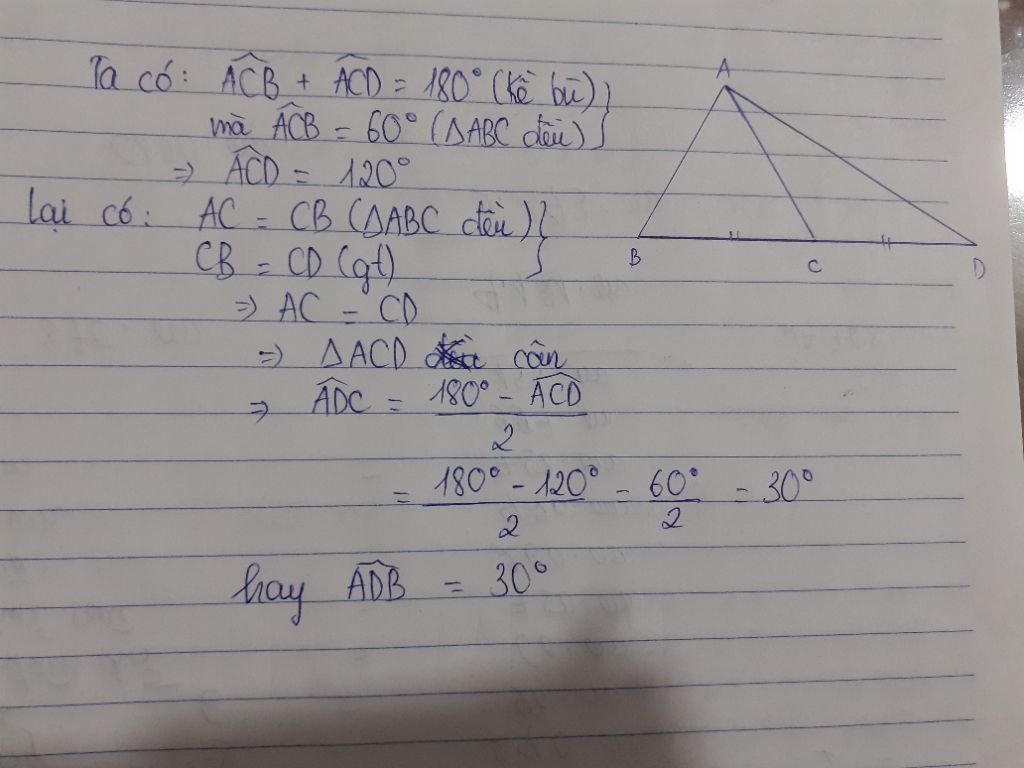 Ta có: ACB̂ + ACD̂ = 180° (kề bù) }
mà ACB̂ = 60° (ΔABC đều) }
=> ACD̂ = 120°
Lại có: AC = CB (ΔABC đều) }
CB = CD (gt) }
=> AC = CD
=> ΔACD cân
=> ADĈ = (180° - ACD̂) / 2
= (180° - 120°) / 2 = 60° / 2 = 30°
hay ADB̂ = 30°
A
B
C
D